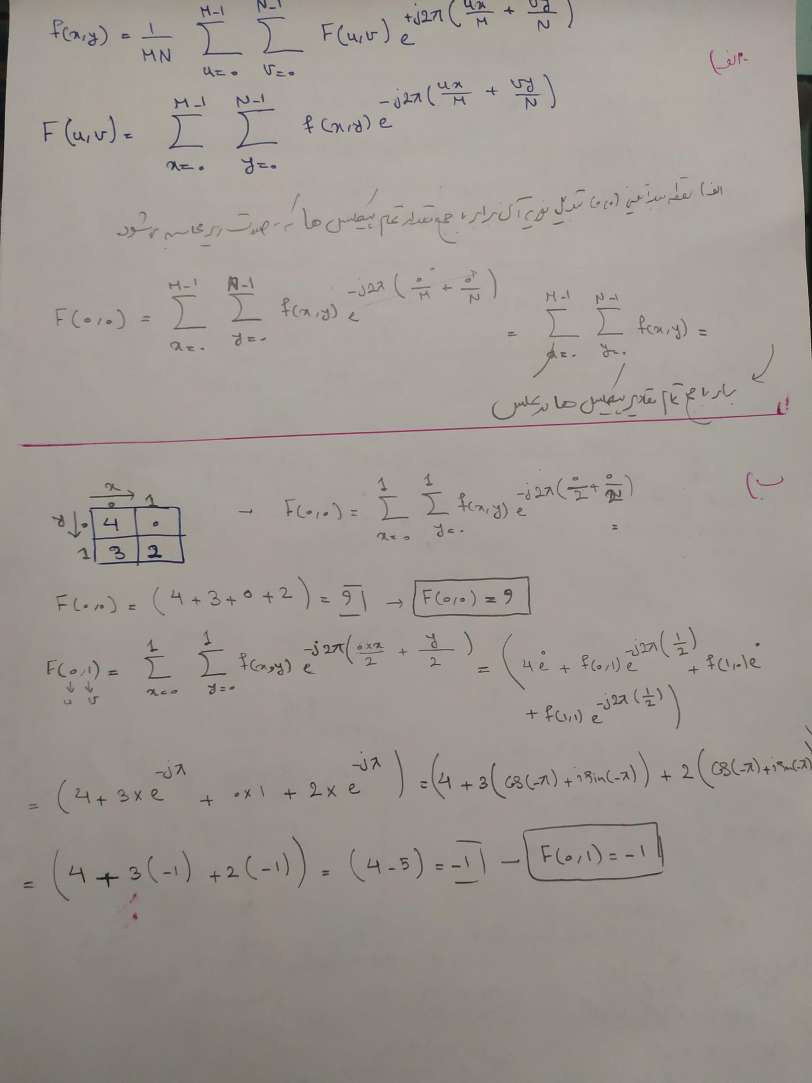 f(x,y) = 1/MN Σ_{u=0}^{M-1} Σ_{v=0}^{N-1} F(u,v) e^{+j2π(ux/M + vy/N)}
الف)
F(u,v) = Σ_{x=0}^{M-1} Σ_{y=0}^{N-1} f(x,y) e^{-j2π(ux/M + vy/N)}
الف) نقطه مبدا یعنی (0,0) تبدیل فوریه آن برابر با جمع مقدار تمام پیکسل ها که به صورت زیر محاسبه می شود
F(0,0) = Σ_{x=0}^{M-1} Σ_{y=0}^{N-1} f(x,y) e^{-j2π(0/M + 0/N)} = Σ_{x=0}^{M-1} Σ_{y=0}^{N-1} f(x,y) =
برابر با جمع تمام مقادیر پیکسل ها در عکس
ب)
x → 0 1
y ↓ 0 4 0
1 3 2
→ F(0,0) = Σ_{x=0}^{1} Σ_{y=0}^{1} f(x,y) e^{-j2π(0/2 + 0/2)} =
F(0,0) = (4+3+0+2) = 9 → F(0,0) = 9
F(0,1) = Σ_{x=0}^{1} Σ_{y=0}^{1} f(x,y) e^{-j2π(0×x/2 + y/2)} = (4e^0 + f(0,1) e^{-j2π(1/2)} + f(1,0)e^0
↓ ↓
u v
+ f(1,1) e^{-j2π(1/2)})
= (4+3×e^{-jπ} + 0×1 + 2×e^{-jπ}) = (4+3(cos(-π)+i sin(-π)) + 2(cos(-π)+i sin(-π)
= (4+3(-1)+2(-1)) = (4-5) = -1 → F(0,1) = -1